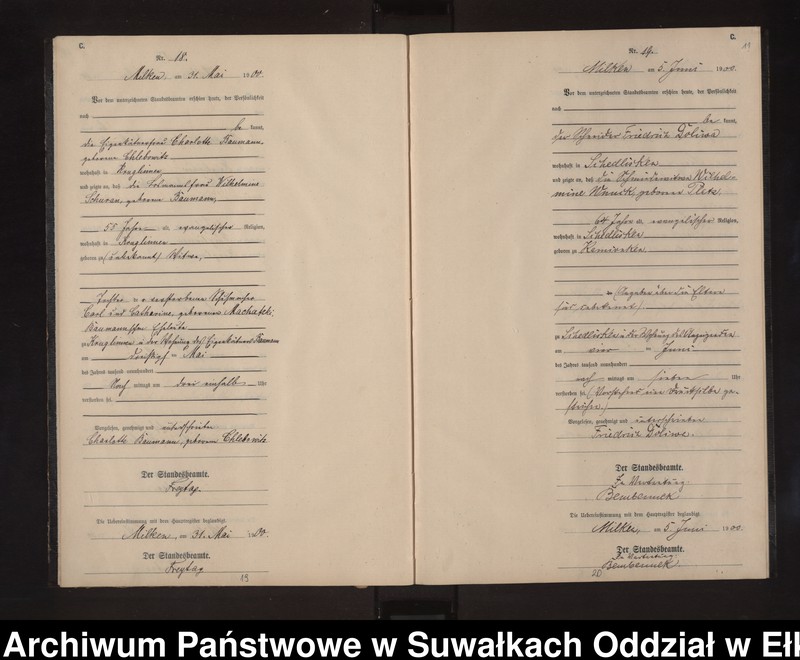 C.
Nr. 18.
Milken, am 31. Mai 1900.
Vor dem unterzeichneten Standesbeamten erschien heute, der Persönlichkeit
nach
be kannt,
die Eigenkätnerfrau Charlotte Baumann
geborene Chlebowitz
wohnhaft in Konglinnen
und zeigte an, daß die Wilhelmine
geborene Baumann,
55 Jahre alt, evangelischer Religion,
wohnhaft in Konglinnen
geboren zu (unbekannt) Witwe,
Tochter der verstorbenen Schuhmacher
Carl und Catharine, geborenen Machutzki,
Baumannschen Eheleute
zu Konglinnen in der Wohnung des Eigenkätners Baumann
am dreißigsten Mai
des Jahres tausend neunhundert
Nach mittags um drei einhalb Uhr
verstorben sei.
Vorgelesen, genehmigt und unterschrieben
Charlotte Baumann geborene Chlebowitz
Der Standesbeamte.
Freytag.
Die Uebereinstimmung mit dem Hauptregister beglaubigt.
Milken, am 31. Mai 1900.
Der Standesbeamte.
Freytag
19
C.
Nr. 19.
Milken am 5. Juni 1900.
Vor dem unterzeichneten Standesbeamten erschien heute, der Persönlichkeit
nach
be kannt,
der Schneider Friedrich Doliwa
wohnhaft in Schedlisken
und zeigte an, daß die Wilhel-
mine geborene
64 Jahre alt, evangelischer Religion,
wohnhaft in Schedlisken
geboren zu
(Angaben über die Eltern
sind unbekannt)
zu Schedlisken in der Wohnung des Anzeigenden
am vier Juni
des Jahres tausend neunhundert
nach mittags um sieben Uhr
verstorben sei. (Vorstehend eine Druksilbe ge-
strichen.)
Vorgelesen, genehmigt und unterschrieben
Friedrich Doliwa.
Der Standesbeamte.
In Vertretung.
Bembennek
Die Uebereinstimmung mit dem Hauptregister beglaubigt.
Milken, am 5. Juni 1900.
Der Standesbeamte.
In Vertretung.
Bembennek.
20
Archiwum Państwowe w Suwałkach Oddział w Ełk